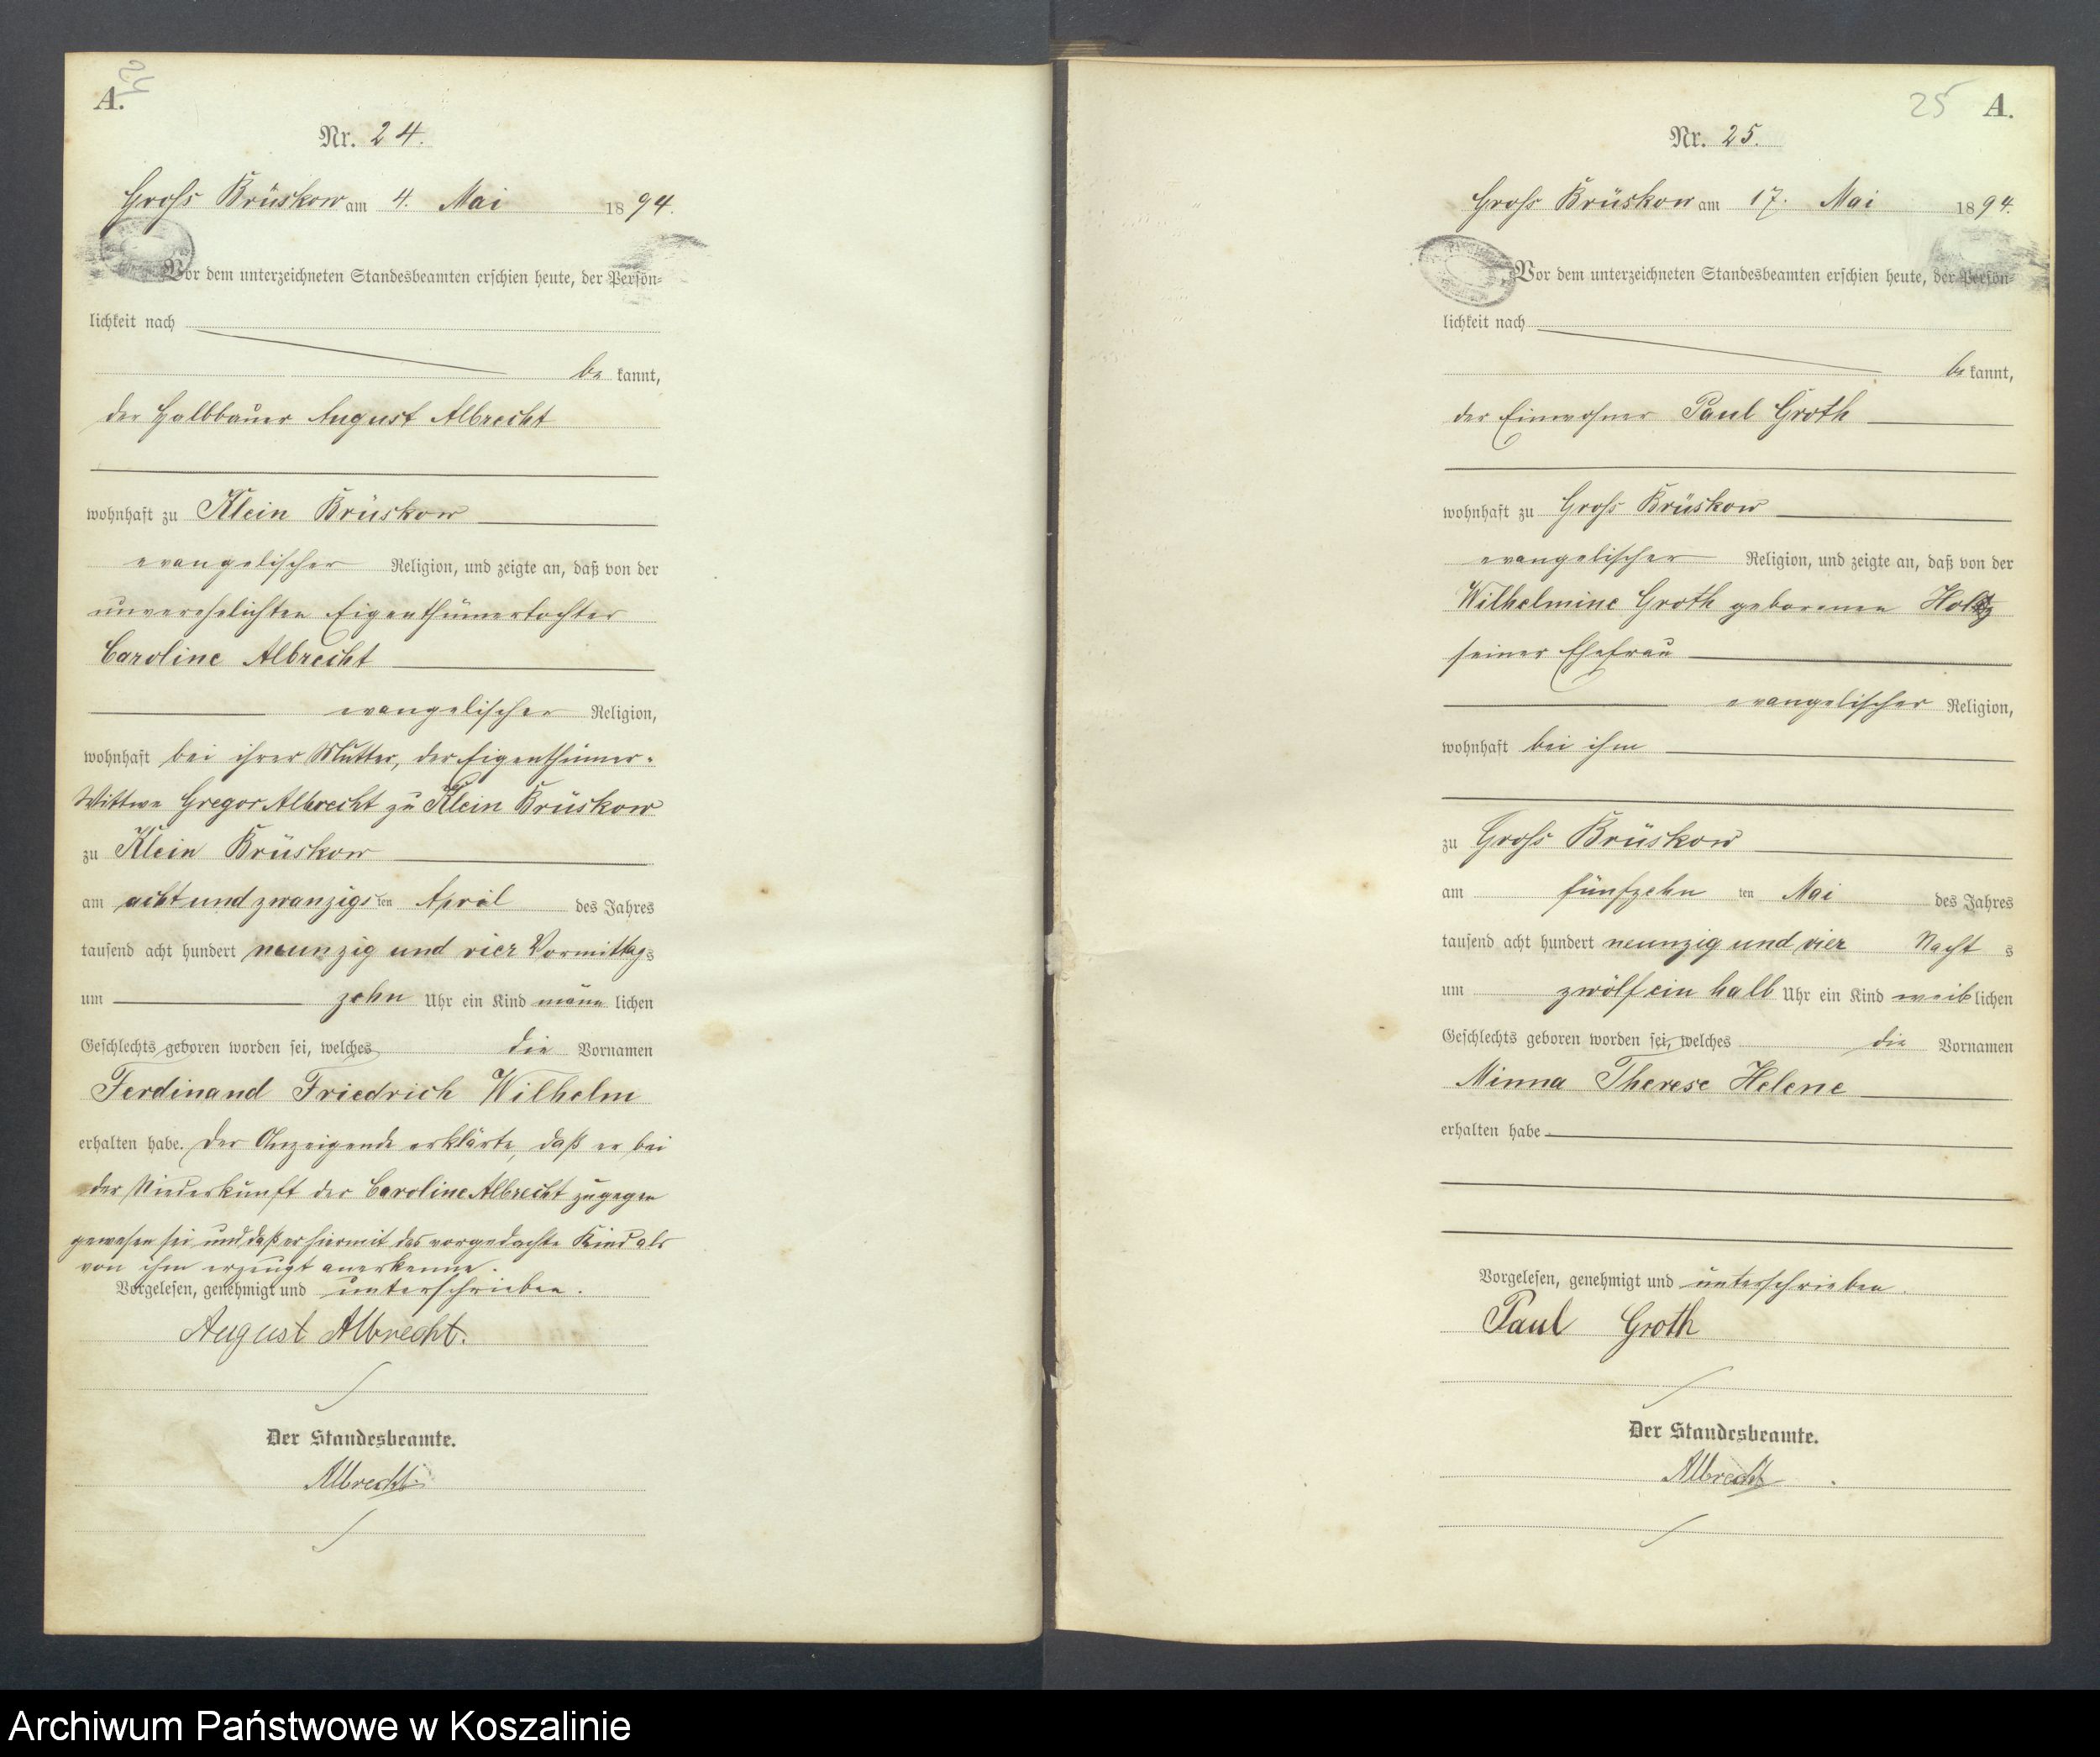 24
A.
Nr. 24.
Groß Brüskow am 4. Mai 1894.
Vor dem unterzeichneten Standesbeamten erschien heute, der Persön-
lichkeit nach
be kannt,
der Halbbauer August Albrecht
wohnhaft zu Klein Brüskow
evangelischer Religion, und zeigte an, daß von der
unverehelichten Eigenthümertochter
Caroline Albrecht
evangelischer Religion,
wohnhaft bei ihrer Mutter, der Eigenthümer-
Wittwe Gregor Albrecht zu Klein Brüskow
zu Klein Brüskow
am acht und zwanzigs ten April des Jahres
tausend acht hundert neunzig und vier Vormittags
um zehn Uhr ein Kind männ lichen
Geschlechts geboren worden sei, welches die Vornamen
Ferdinand Friedrich Wilhelm
erhalten habe. Der Anzeigende erklärte, daß er bei
der Niederkunft der Caroline Albrecht zugegen
gewesen sei und daß er hiermit das vorgedachte Kind als
von ihm erzeugt anerkenne.
Vorgelesen, genehmigt und unterschrieben.
August Albrecht.
Der Standesbeamte.
Albrecht
25 A.
Nr. 25.
Groß Brüskow am 17. Mai 1894.
Vor dem unterzeichneten Standesbeamten erschien heute, der Persön-
lichkeit nach
be kannt,
der Einwohner Paul Groth
wohnhaft zu Groß Brüskow
evangelischer Religion, und zeigte an, daß von der
Wilhelmine Groth geborenen Holtz
seiner Ehefrau
evangelischer Religion,
wohnhaft bei ihm
zu Groß Brüskow
am fünfzehn ten Mai des Jahres
tausend acht hundert neunzig und vier Nacht s
um zwölf ein halb Uhr ein Kind weib lichen
Geschlechts geboren worden sei, welches die Vornamen
Minna Therese Helene
erhalten habe
Vorgelesen, genehmigt und unterschrieben.
Paul Groth
Der Standesbeamte.
Albrecht
Archiwum Państwowe w Koszalinie